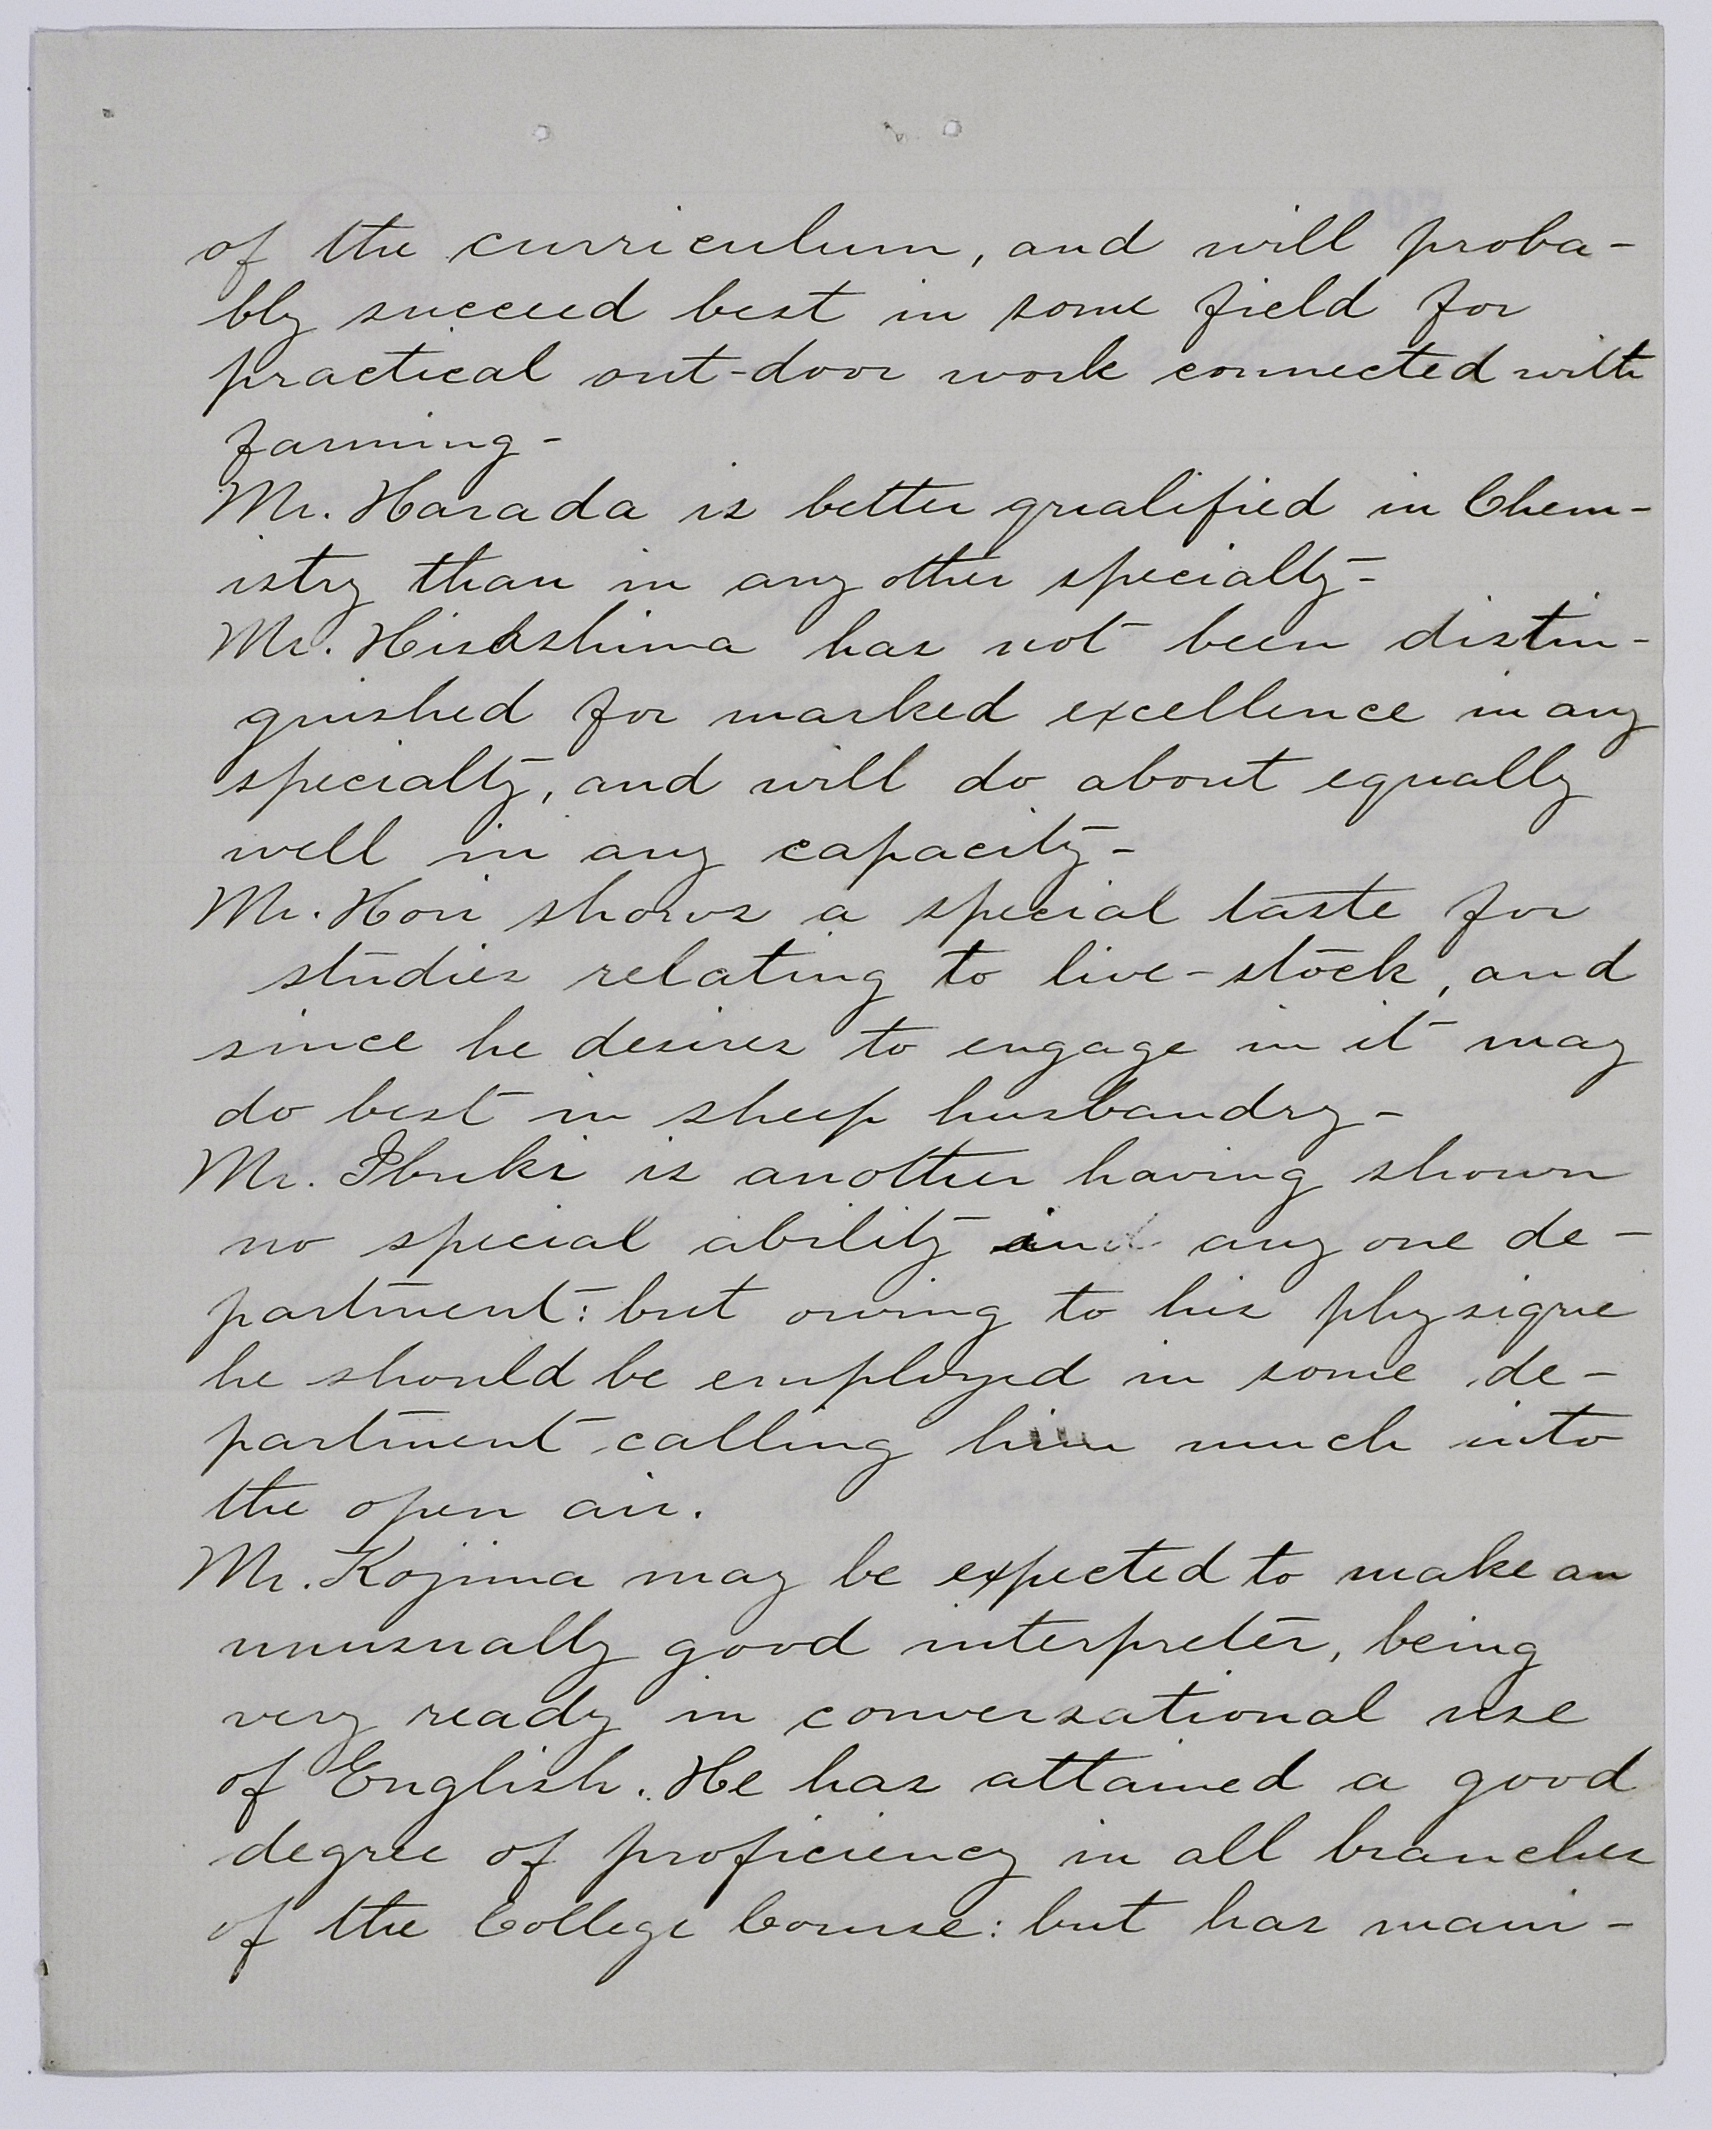 of the curriculum, and will proba-
bly succeed best in some field for
practical out-door work connected with
farming-
Mr. Harada is better qualified in Chem-
istry than in any other specialty-
Mr. Hisashima has not been distin-
guished for marked excellence in any
specialty, and will do about equally
well in any capacity-
Mr. Hori shows a special taste for
studies relating to live-stock, and
since he desires to engage in it may
do best in sheep husbandry-
Mr. Ibuki is another having shown
no special ability in any one de-
partment: but owing to his physique
he should be employed in some de-
partment calling him much into
the open air.
Mr. Kojima may be expected to make an
unusually good interpreter, being
very ready in conversational use
of English. He has attained a good
degree of proficiency in all branches
of the College Course: but has mani-